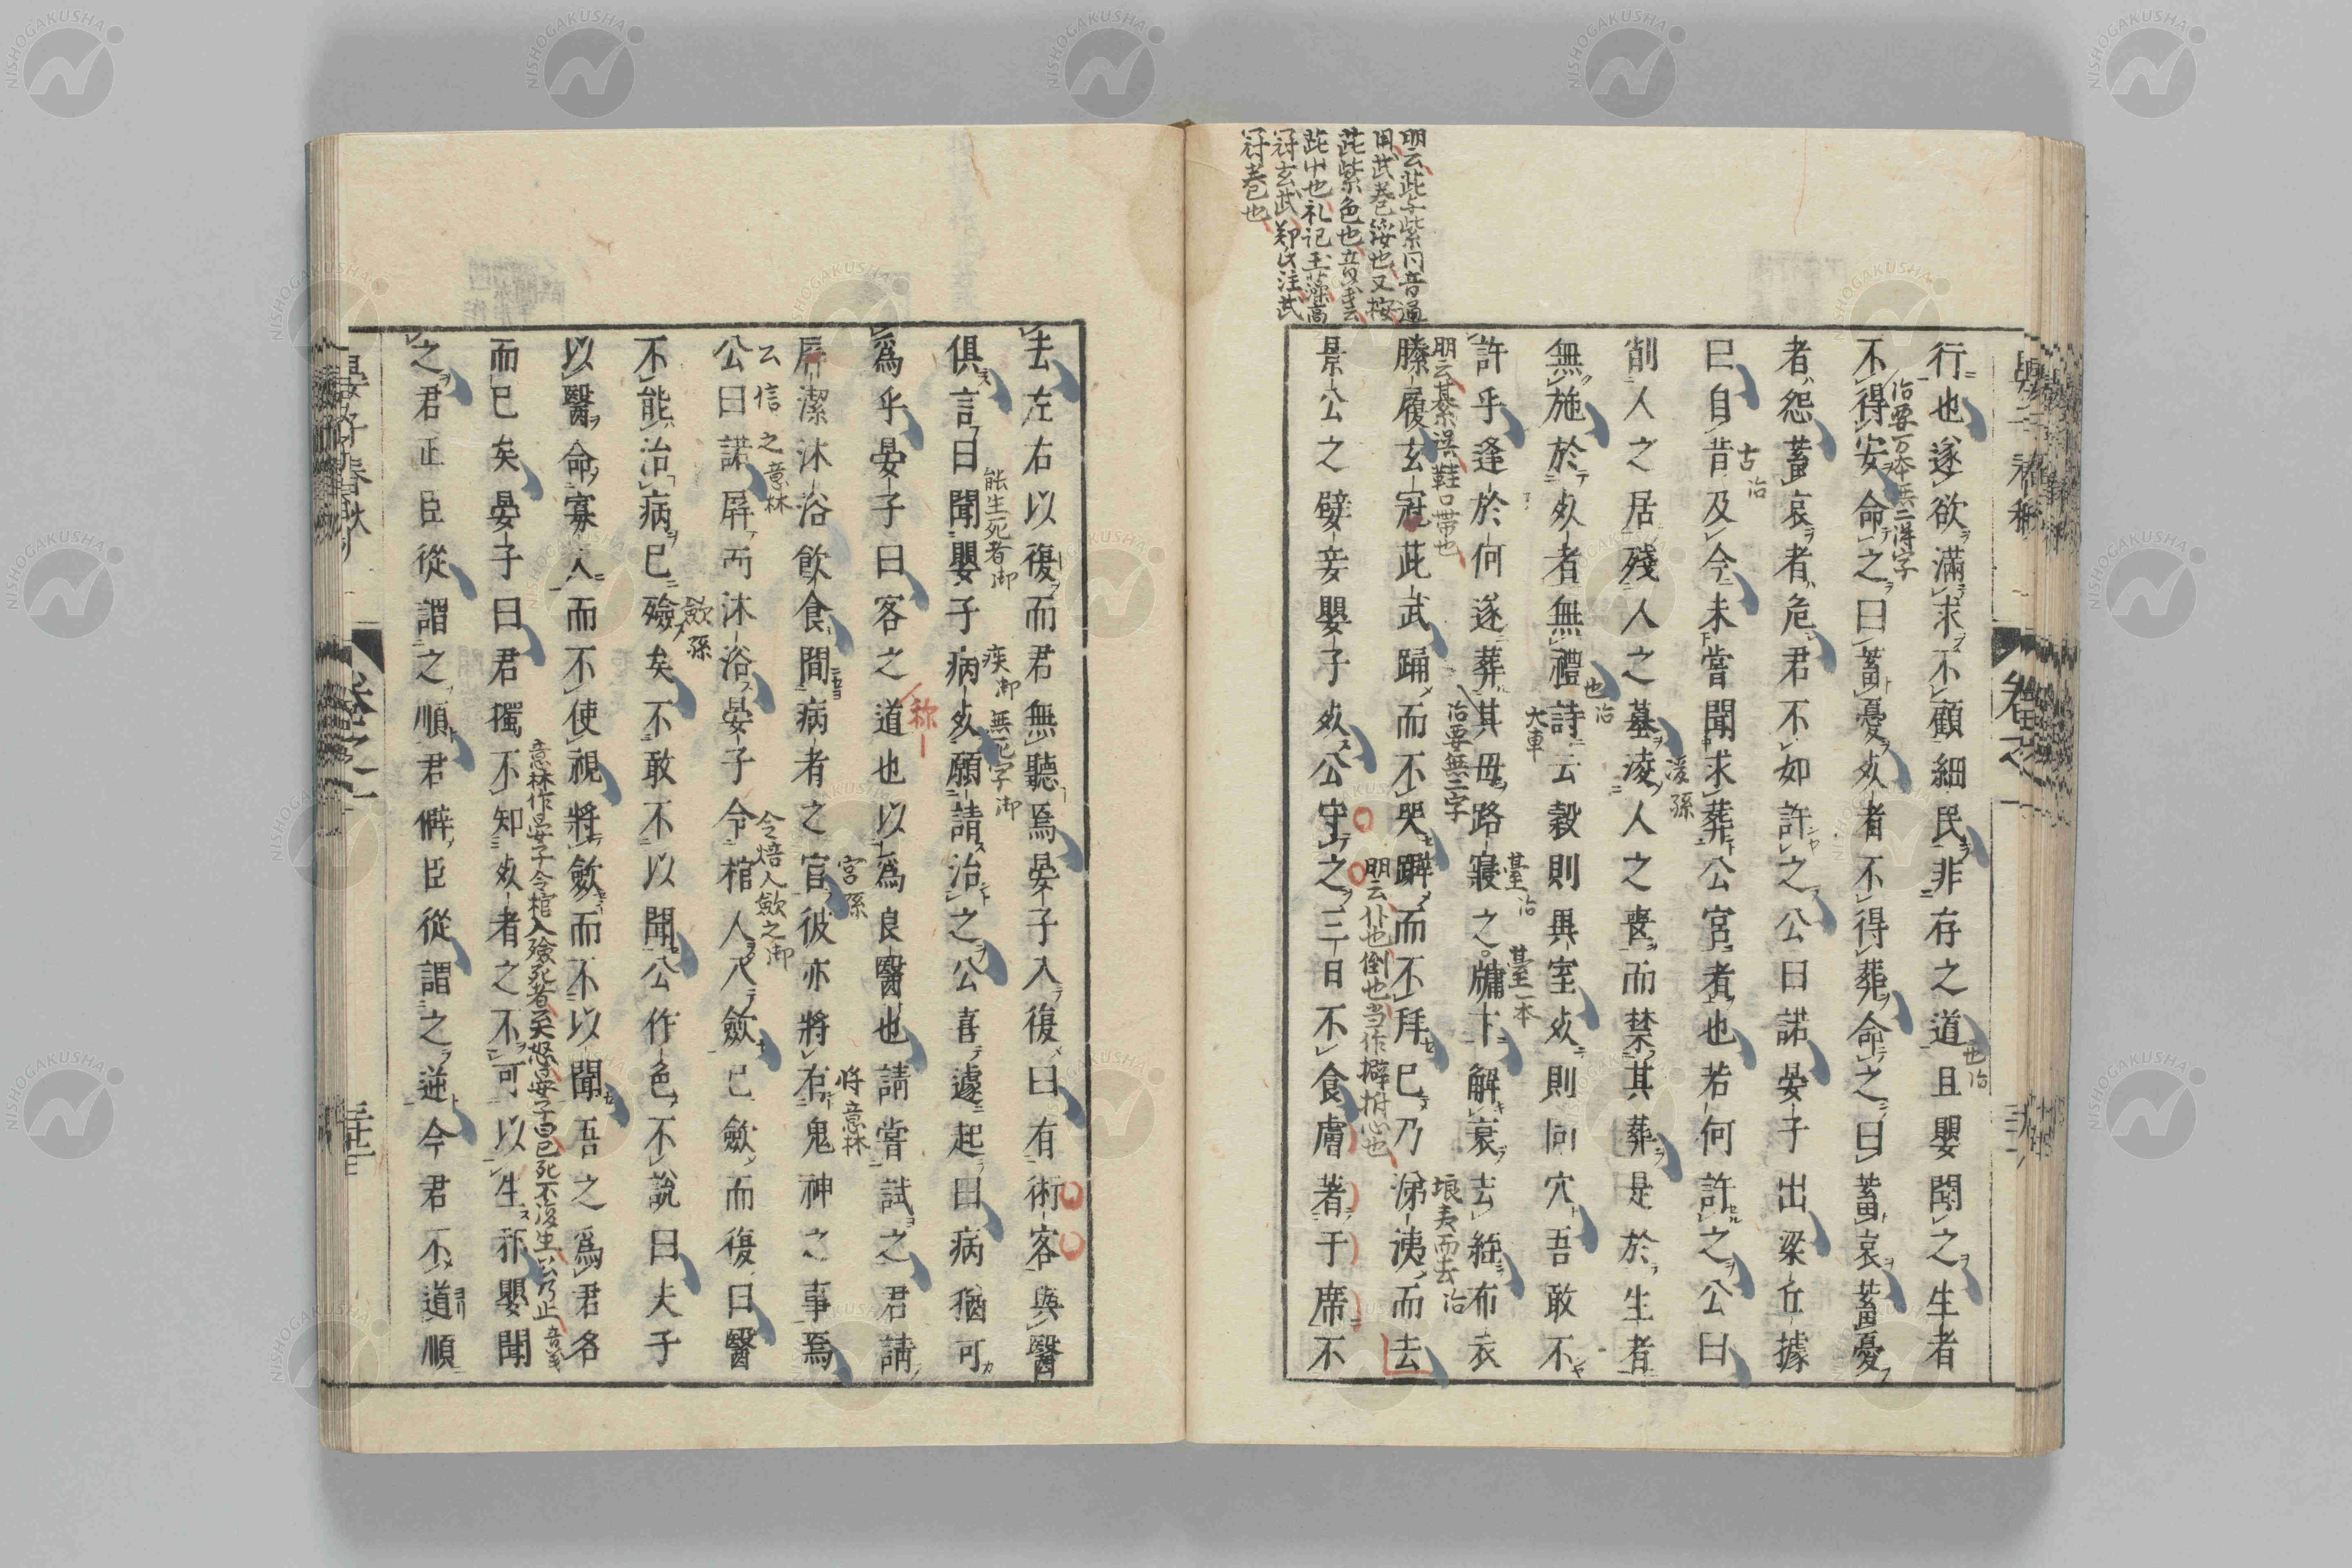 行也遂欲滿求不顧細民非存之道且嬰聞之生者
不得安命之曰蓄憂死者不得葬命之曰蓄哀蓄憂
者怨蓄哀者危君不如許之公曰諾晏子出梁丘據
曰自昔及今未嘗聞求葬公宮者也若何許之公曰
削人之居殘人之墓凌人之喪而禁其葬是於生者
無施於死者無禮詩云穀則異室死則同穴吾敢不
許乎逢於何遂葬其母路寢之牖下解衰去絰布衣
縢履玄冠茈武踊而不哭躃而不拜已乃涕洟而去
景公之嬖妾嬰子死公守之三日不食膚著于席不
去左右以復而君無聽焉晏子入復曰有術客與醫
俱言曰聞嬰子病死願請治之公喜遽起曰病猶可
爲乎晏子曰客之道也以爲良醫也請嘗試之君請
屏潔沐浴飲食間病者之宮彼亦將有鬼神之事焉
公曰諾屏而沐浴晏子令棺人入歛已歛而復曰醫
不能治病已殮矣不敢不以聞公作色不說曰夫子
以醫命寡人而不使視將歛而不以聞吾之爲君名
而已矣晏子曰君獨不知死者之不可以生邪嬰聞
之君正臣從謂之順君僻臣從謂之逆今君不道順
明云茈与紫同音通
用武卷綏也又按
茈紫色也音義云
茈中也礼記玉藻縞
冠玄武鄭氏注武
冠卷也
治要万本無二得字
也治
古治
凌孫
也治
大車
治要無二字
臺治
臺一本
明云綦誤鞋口帯也
垠夷而去治
明云仆也倒也当作擗拊心也
能生死者御
疾御
無死字御
称
宮孫
将意林
公信之意林
令焙人歛之御
歛孫
意林作晏子令棺入殮死者公大怒晏子曰已死不復生公乃止音義
晏子春秋
卷之二